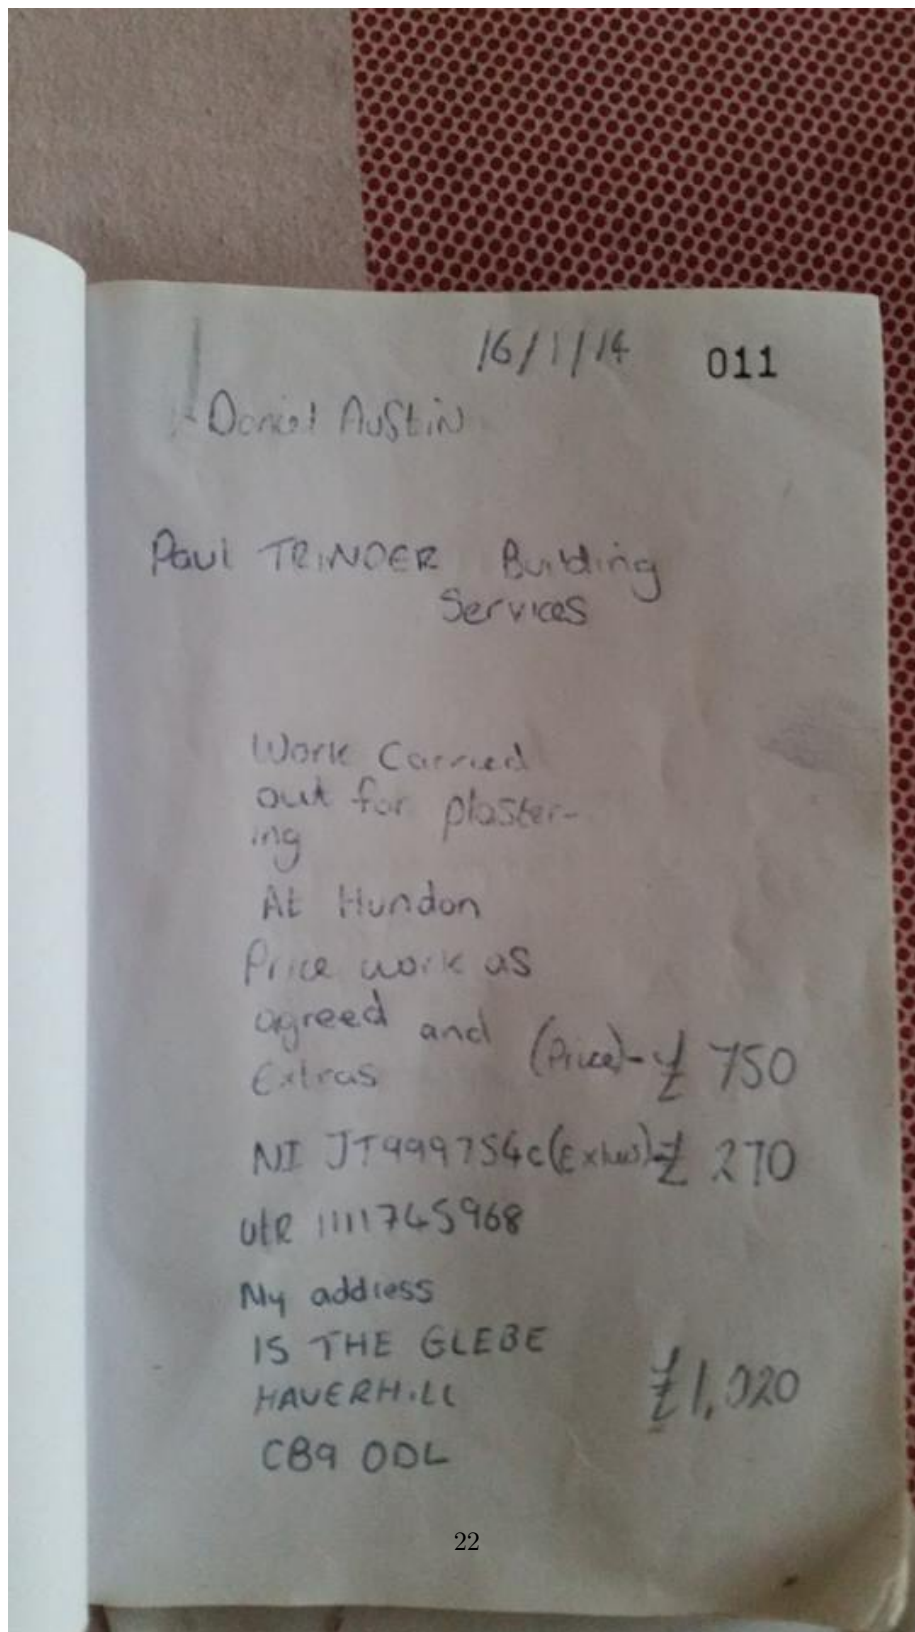 16/1/14 011
Daniel Austin
Paul TRINDER Building
Services
Work Carried
out for plaster-
ing
At Hundon
Price work as
agreed and (Price)-£ 750
Extras
NI JT999754c(Extras)-£ 270
UtR 1111745968
My address
15 THE GLEBE
HAVERHILL £1,020
CB9 0DL
22